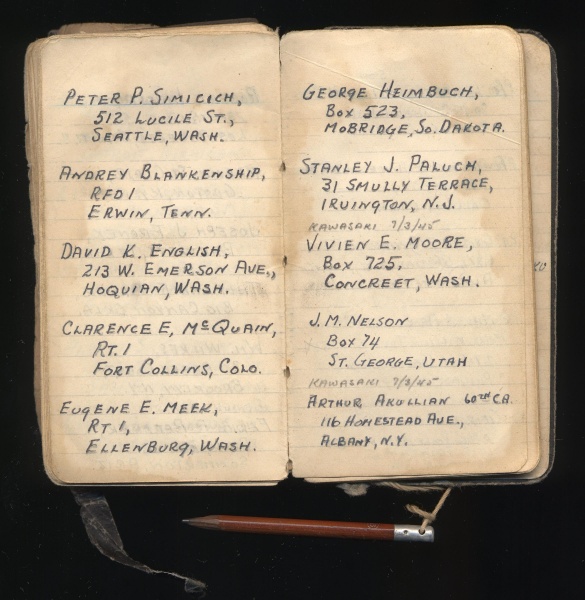 PETER P. SIMICICH,
512 LUCILE ST.,
SEATTLE, WASH.
ANDREY BLANKENSHIP,
RFD 1
ERWIN, TENN.
DAVID K. ENGLISH,
213 W. EMERSON AVE.,
HOQUIAN, WASH.
CLARENCE E, McQUAIN,
RT. 1
FORT COLLINS, COLO.
EUGENE E. MEEK,
RT. 1,
ELLENBURG, WASH.
GEORGE HEIMBUCH,
BOX 523,
MOBRIDGE, SO. DAKOTA.
STANLEY J. PALUCH,
31 SMULLY TERRACE,
IRVINGTON, N.J.
KAWASAKI 7/3/45
VIVIEN E. MOORE,
BOX 725,
CONCREET, WASH.
J.M. NELSON
BOX 74
ST. GEORGE, UTAH
KAWASAKI 7/3/45
ARTHUR AKULLIAN 60TH CA.
116 HOMESTEAD AVE.,
ALBANY, N.Y.